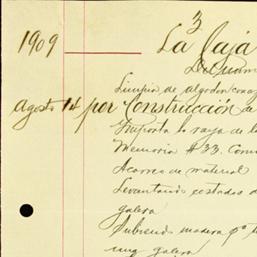 3
1909 La Caja
De Guam
Limpia de algodon con a
Agosto 14 por Construcción de
Importa la raya de l
Memoria #33. Com
Acarreo de material
Levantando costados d
galera
Subiendo madera pª t
una galera